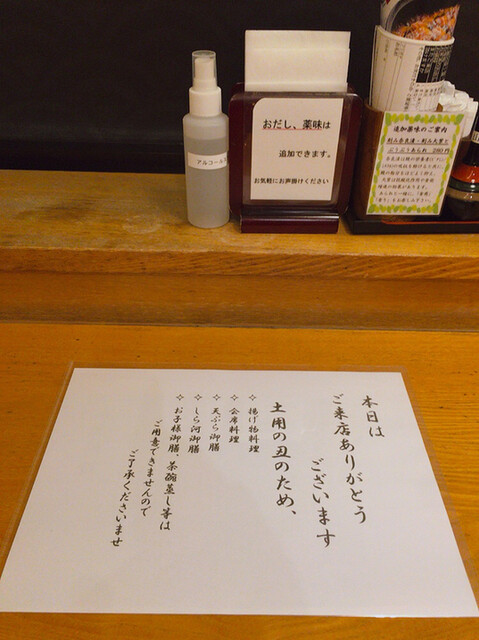 アルコール
おだし、薬味は
追加できます。
お気軽にお声掛けください
追加薬味のご案内
刻み奈良漬・刻み大葉と
ぶぶあられ 200円
本日は
ご来店ありがとう
ございます
土用の丑のため、
✧ 揚げ物料理
✧ 会席料理
✧ 天ぷら御膳
✧ しら河御膳
✧ お子様御膳、茶碗蒸し等は
ご用意できませんので
ご了承くださいませ